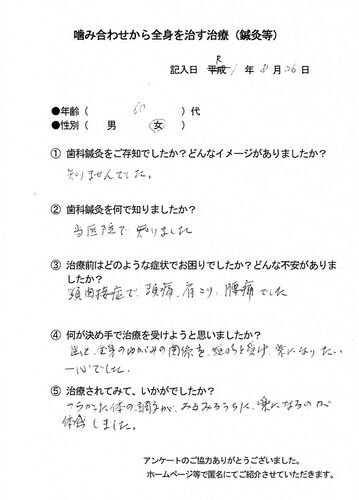 噛み合わせから全身を治す治療（鍼灸等）
記入日 平成 R 1 年 8 月 26 日
●年齢（ 60 ）代
●性別（ 男 女 ）
① 歯科鍼灸をご存知でしたか？どんなイメージがありましたか？
知りませんでした。
② 歯科鍼灸を何で知りましたか？
当医院で知りました
③ 治療前はどのような症状でお困りでしたか？どんな不安がありま
したか？
顎関節症で、頭痛、肩こり、腰痛でした
④ 何が決め手で治療を受けようと思いましたか？
歯と、全身のゆがみの関係を、 受け 楽になりたい
一心でした。
⑤ 治療されてみて、いかがでしたか？
つらかった体の調子が、みるみるうちに、楽になるのが
体感しました。
アンケートのご協力ありがとうございました。
ホームページ等で匿名にてご紹介させていただきます。